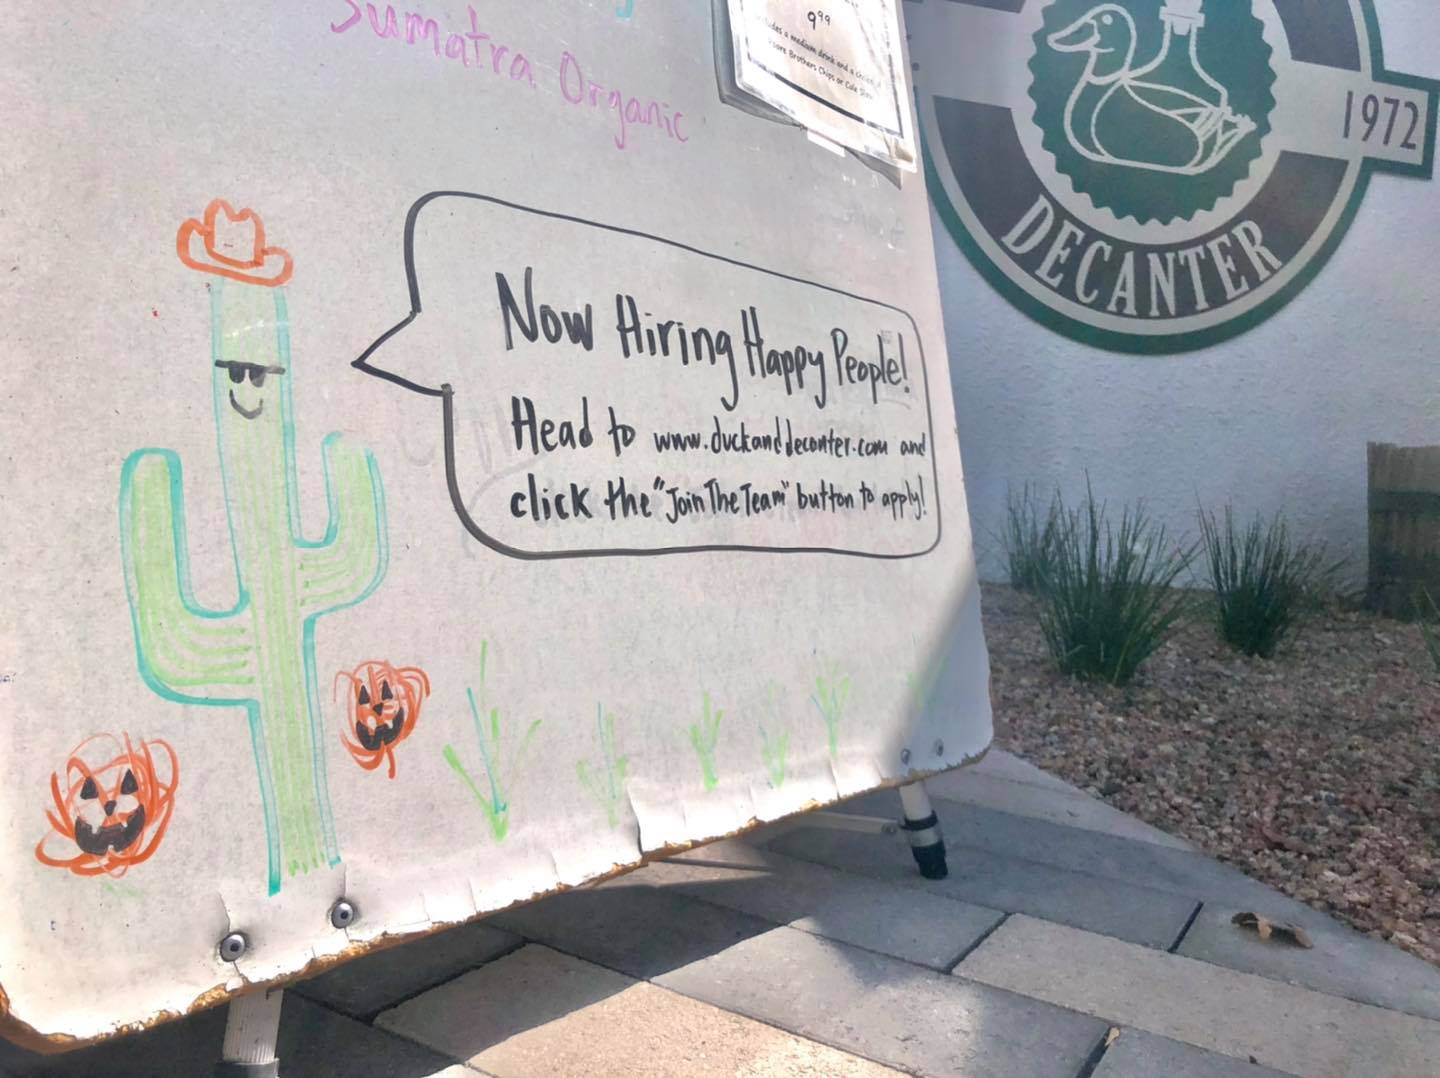 Sumatra Organic
9⁹⁹
includes a medium drink and a choice of
Brothers Chips or Cole Slaw
1972
DECANTER
Now Hiring Happy People!
Head to www.duckanddecanter.com and
click the "Join The Team" button to apply!